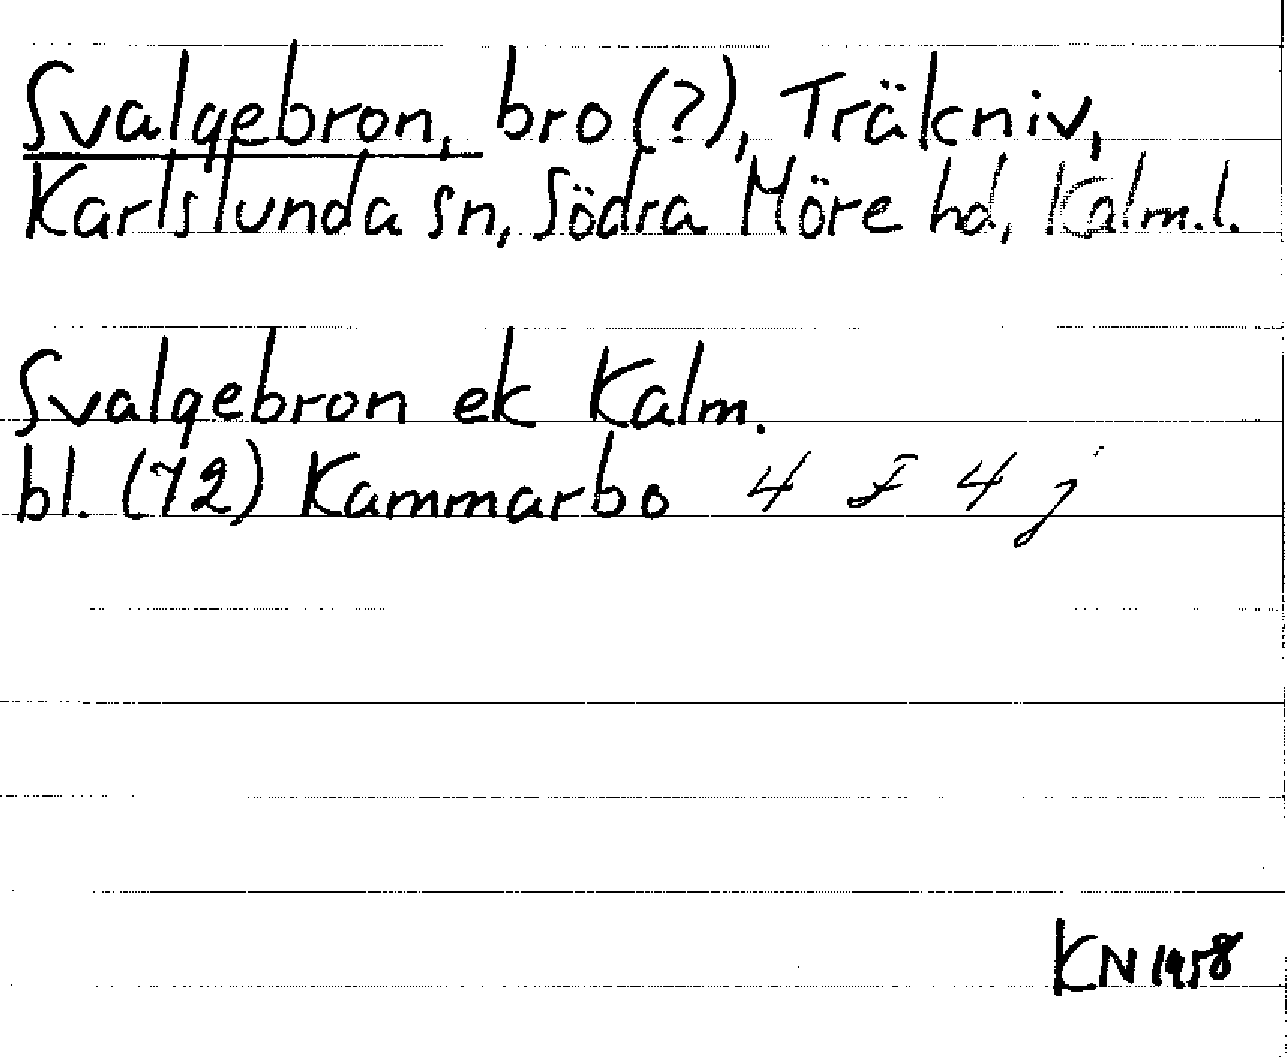 Svalgebron, bro (?), Träkniv,
Karlslunda sn, Södra Möre hd, Kalm.l.
Svalgebron ek Kalm.
bl. (72) Kammarbo 4 F 4 j
KN 1958